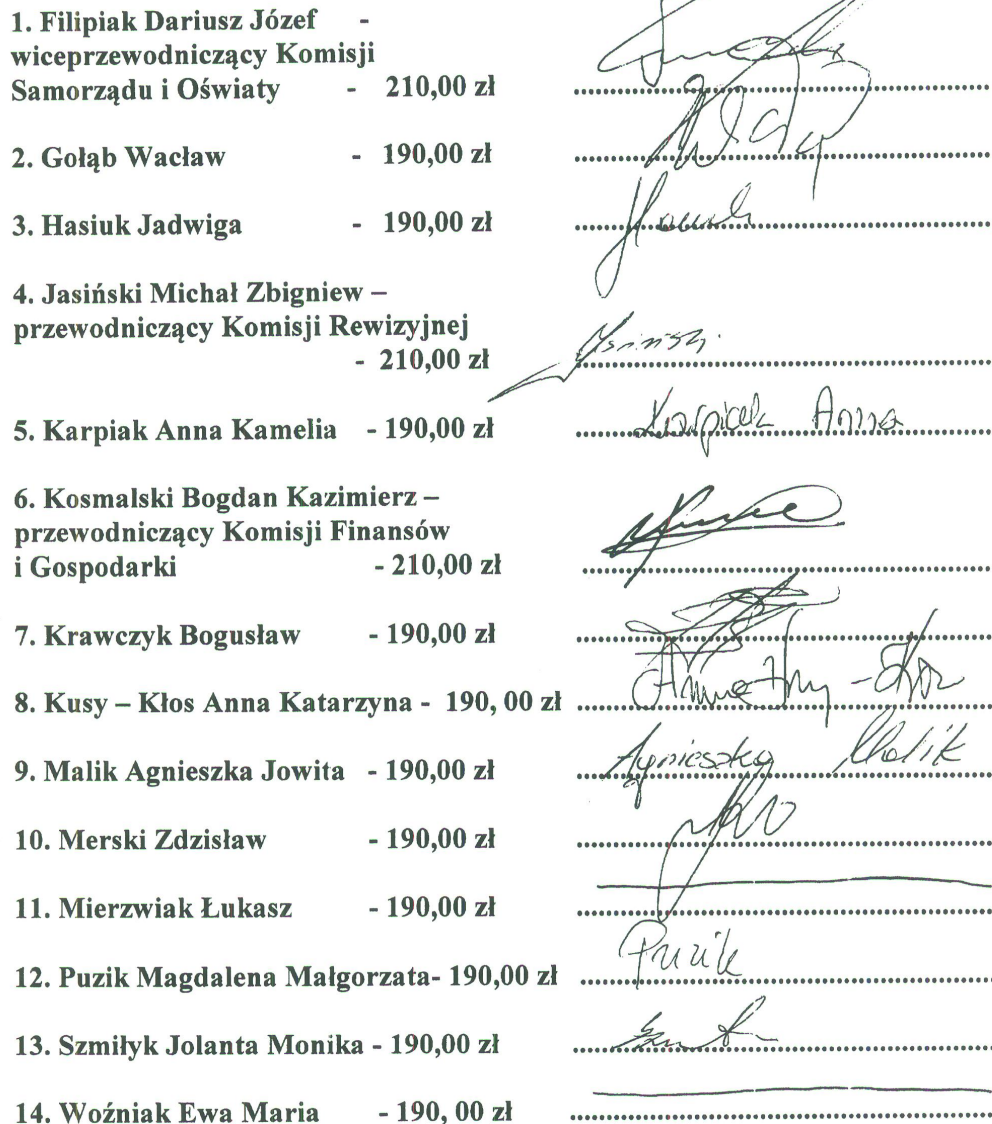 1. Filipiak Dariusz Józef -
wiceprzewodniczący Komisji
Samorządu i Oświaty - 210,00 zł
2. Gołąb Wacław - 190,00 zł
3. Hasiuk Jadwiga - 190,00 zł
4. Jasiński Michał Zbigniew –
przewodniczący Komisji Rewizyjnej
- 210,00 zł
5. Karpiak Anna Kamelia - 190,00 zł Karpiak Anna
6. Kosmalski Bogdan Kazimierz –
przewodniczący Komisji Finansów
i Gospodarki - 210,00 zł
7. Krawczyk Bogusław - 190,00 zł
8. Kusy – Kłos Anna Katarzyna - 190, 00 zł
9. Malik Agnieszka Jowita - 190,00 zł Agnieszka Malik
10. Merski Zdzisław - 190,00 zł
11. Mierzwiak Łukasz - 190,00 zł
12. Puzik Magdalena Małgorzata- 190,00 zł Puzik
13. Szmiłyk Jolanta Monika - 190,00 zł
14. Woźniak Ewa Maria - 190, 00 zł